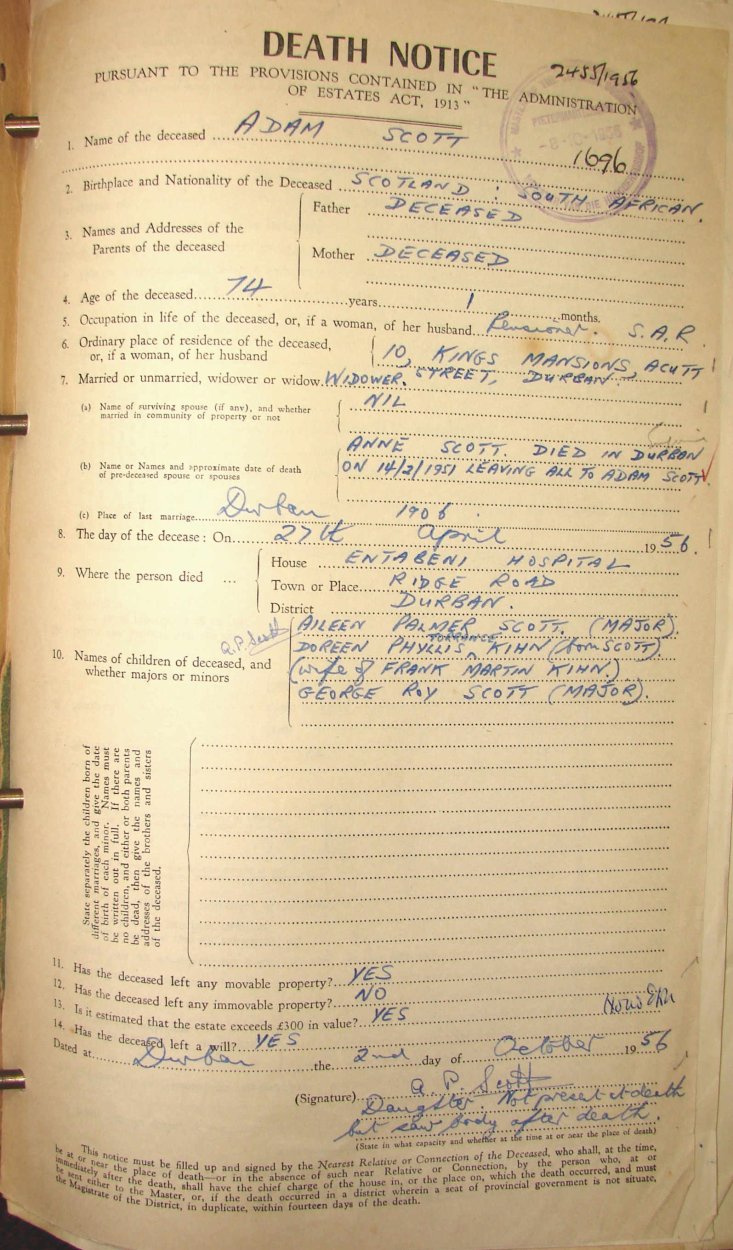 DEATH NOTICE
2455/1956
PURSUANT TO THE PROVISIONS CONTAINED IN "THE ADMINISTRATION
OF ESTATES ACT, 1913"
1. Name of the deceased ADAM SCOTT
1696
2. Birthplace and Nationality of the Deceased SCOTLAND : SOUTH AFRICAN.
3. Names and Addresses of the Parents of the deceased
Father DECEASED
Mother DECEASED
4. Age of the deceased 74 years 1 months.
5. Occupation in life of the deceased, or, if a woman, of her husband Pensioner. S.A.R.
6. Ordinary place of residence of the deceased, or, if a woman, of her husband
10, KINGS MANSIONS, ACUTT
7. Married or unmarried, widower or widow. WIDOWER. STREET, DURBAN.
(a) Name of surviving spouse (if any), and whether married in community of property or not
NIL
(b) Name or Names and approximate date of death of pre-deceased spouse or spouses
ANNE SCOTT. DIED IN DURBAN
ON 14/2/1951 LEAVING ALL TO ADAM SCOTT
(c) Place of last marriage Durban 1906.
8. The day of the decease : On 27th April 1956.
9. Where the person died ...
House ENTABENI HOSPITAL
Town or Place RIDGE ROAD
District DURBAN.
10. Names of children of deceased, and whether majors or minors
A.P. Scott
AILEEN PALMER SCOTT. (MAJOR).
TORRANCE
DOREEN PHYLLIS KIHN (born SCOTT)
(wife of FRANK MARTIN KIHN)
GEORGE ROY SCOTT (MAJOR).
State separately the children born of
different marriages, and give the date
of birth of each minor. Names must
be written out in full. If there are
no children, and either or both parents
be dead, then give the names and
addresses of the brothers and sisters
of the deceased.
11. Has the deceased left any movable property? YES
12. Has the deceased left any immovable property? NO
13. Is it estimated that the estate exceeds £300 in value? YES
14. Has the deceased left a will? YES
Dated at Durban the 2nd day of October 1956
(Signature) A. P. Scott
Daughter Not present at death
but saw body after death.
(State in what capacity and whether at the time at or near the place of death)
This notice must be filled up and signed by the Nearest Relative or Connection of the Deceased, who shall, at the time,
be at or near the place of death—or in the absence of such near Relative or Connection, by the person who, at or
immediately after the death, shall have the chief charge of the house in, or the place on, which the death occurred, and must
be sent either to the Master, or, if the death occurred in a district wherein a seat of provincial government is not situate,
the Magistrate of the District, in duplicate, within fourteen days of the death.